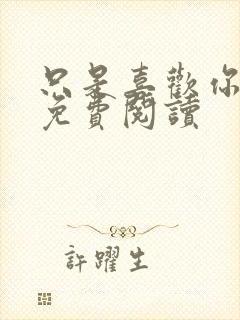 只是喜歡你
免費閱讀
許躍生